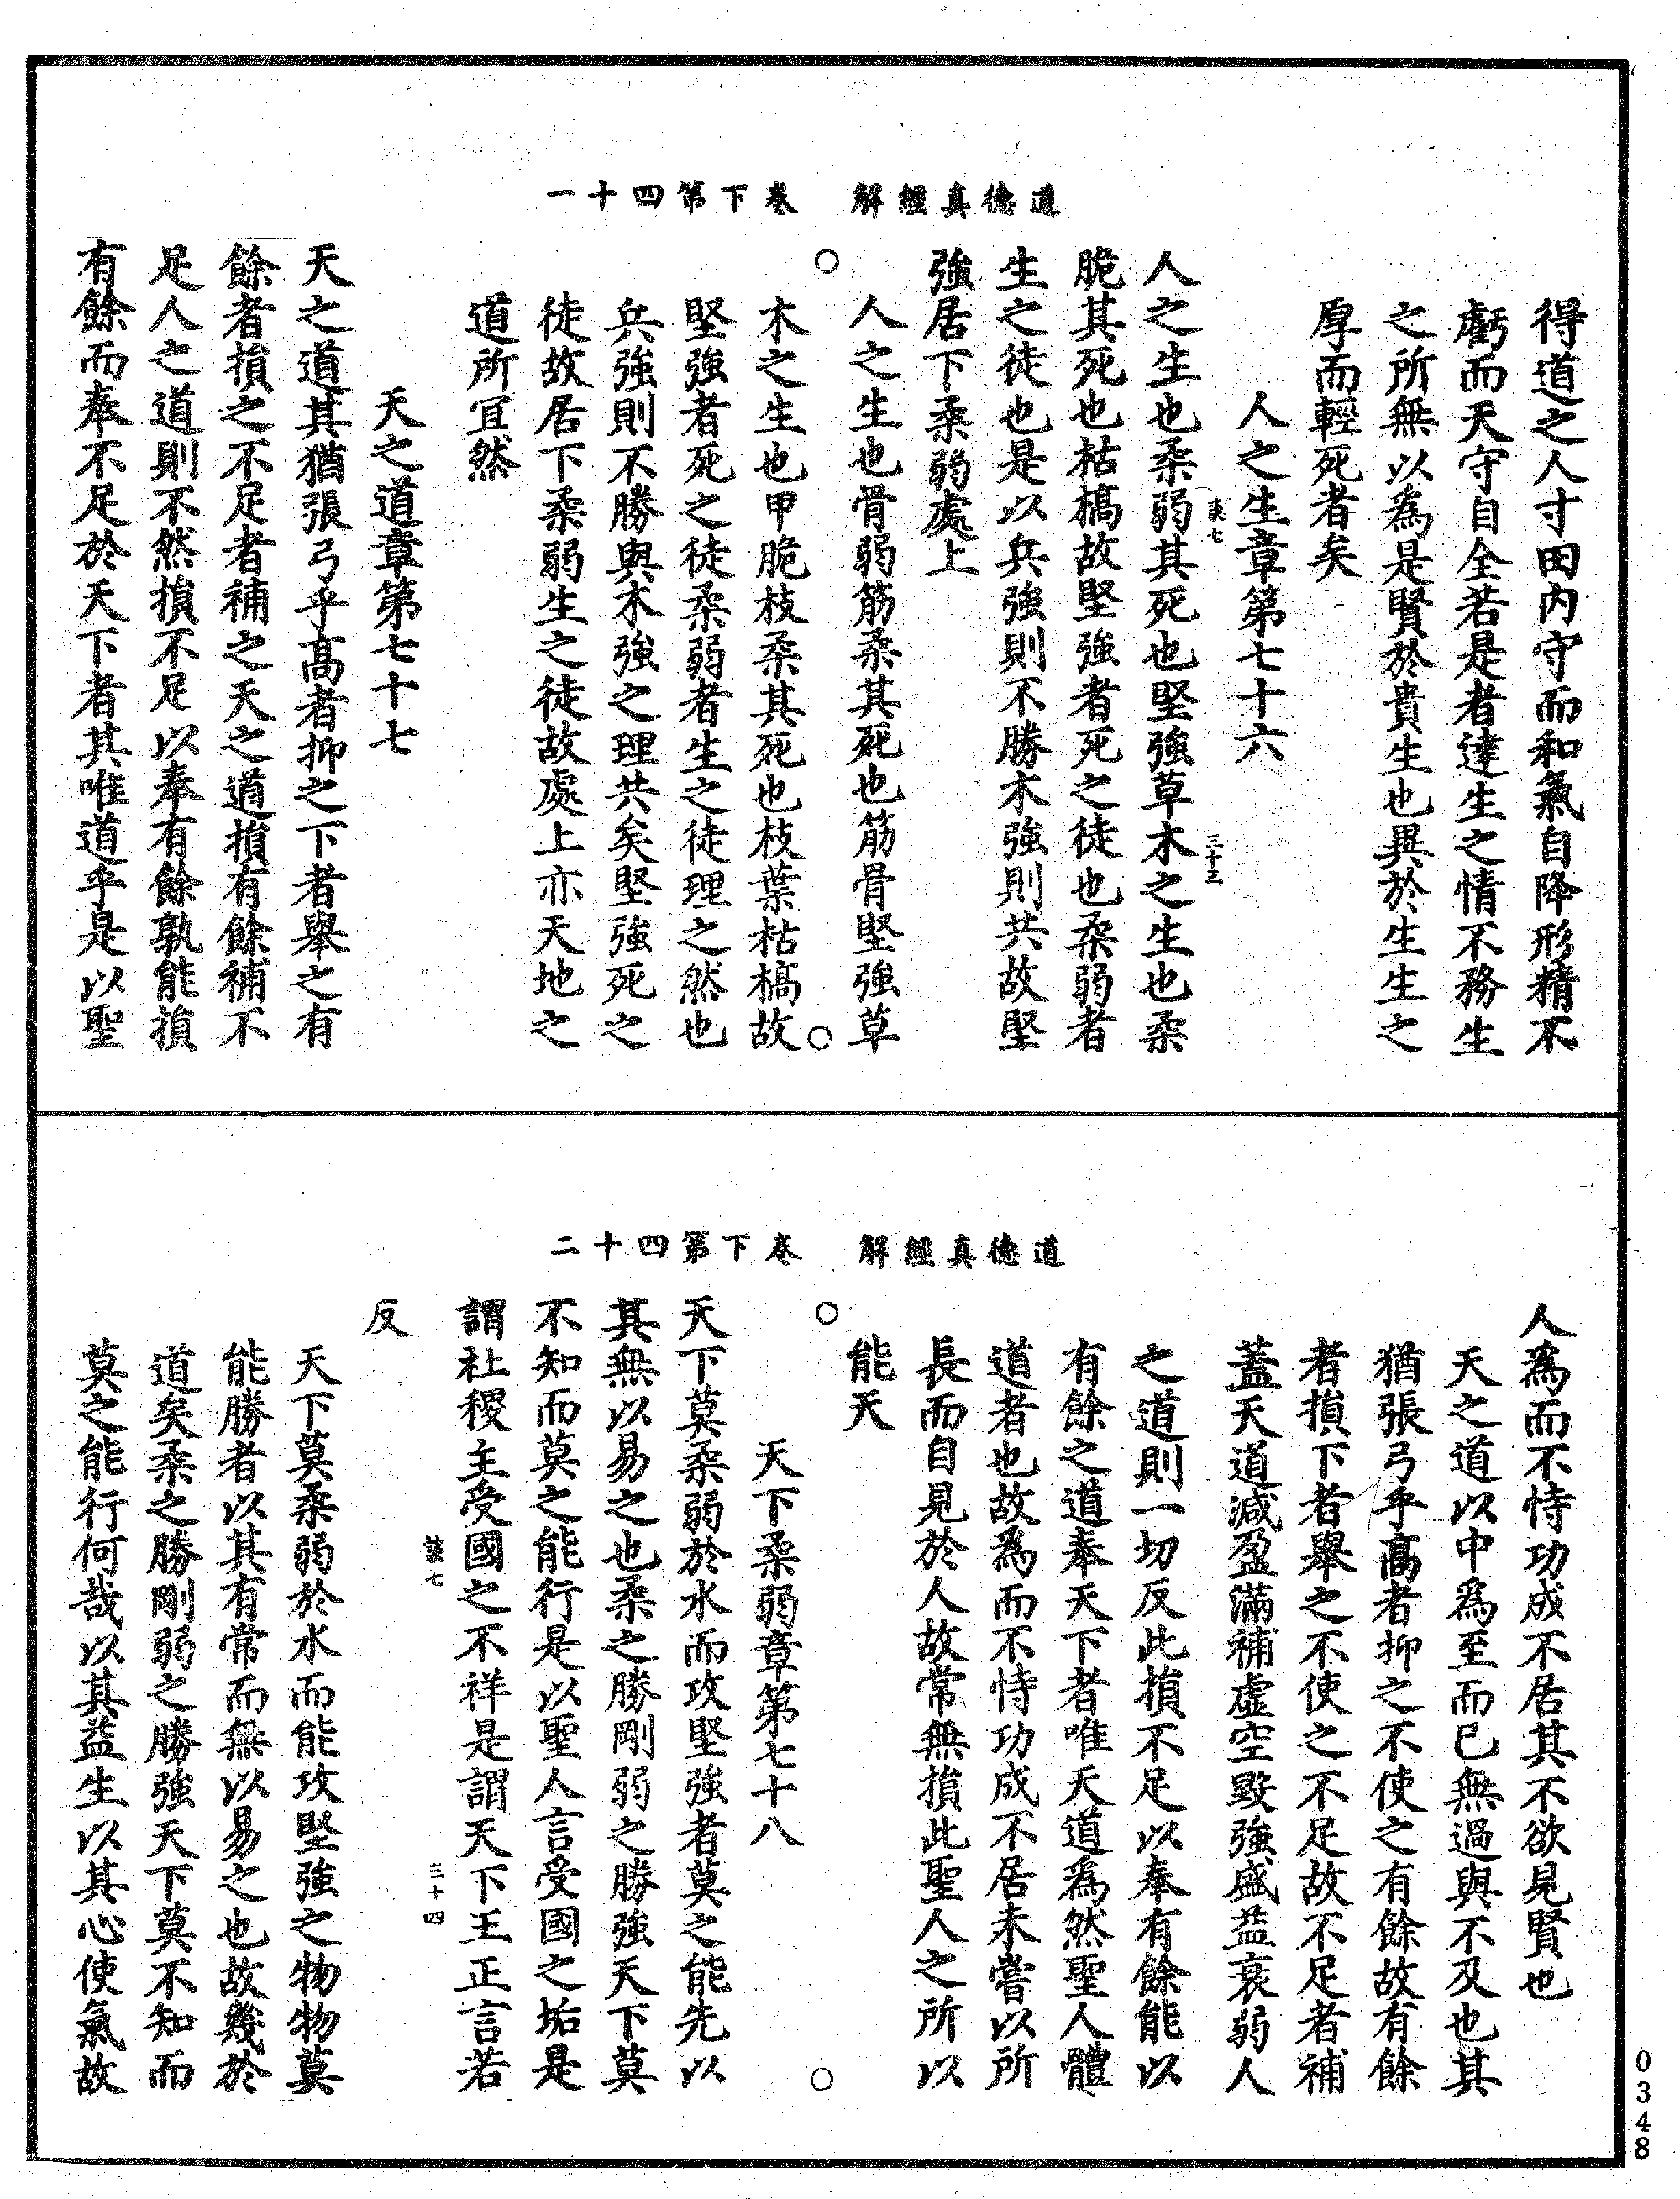 道德真經解　卷下第四十一
得道之人寸田内守而和氣自降形精不
虧而天守自全若是者達生之情不務生
之所無以為是賢於貴生也異於生生之
厚而輕死者矣
人之生章第七十六
談七
三十三
人之生也柔弱其死也堅強草木之生也柔
脆其死也枯槁故堅強者死之徒也柔弱者
生之徒也是以兵強則不勝木強則共故堅
強居下柔弱處上
人之生也骨弱筋柔其死也筋骨堅強草
木之生也甲脆枝柔其死也枝葉枯槁故
堅強者死之徒柔弱者生之徒理之然也
兵強則不勝與木強之理共矣堅強死之
徒故居下柔弱生之徒故處上亦天地之
道所冝然
天之道章第七十七
天之道其猶張弓乎高者抑之下者舉之有
餘者損之不足者補之天之道損有餘補不
足人之道則不然損不足以奉有餘孰能損
有餘而奉不足於天下者其唯道乎是以聖
道德真經解　卷下第四十二
人為而不恃功成不居其不欲見賢也
天之道以中為至而已無過與不及也其
猶張弓乎高者抑之不使之有餘故有餘
者損下者舉之不使之不足故不足者補
蓋天道減盈滿補虛空毀強盛益衰弱人
之道則一切反此損不足以奉有餘能以
有餘之道奉天下者唯天道為然聖人體
道者也故為而不恃功成不居未嘗以所
長而自見於人故常無損此聖人之所以
能天
天下柔弱章第七十八
天下莫柔弱於水而攻堅強者莫之能先以
其無以易之也柔之勝剛弱之勝強天下莫
不知而莫之能行是以聖人言受國之垢是
謂社稷主受國之不祥是謂天下王正言若
談七
三十四
反
天下莫柔弱於水而能攻堅強之物物莫
能勝者以其有常而無以易之也故幾於
道矣柔之勝剛弱之勝強天下莫不知而
莫之能行何哉以其益生以其心使氣故
0348